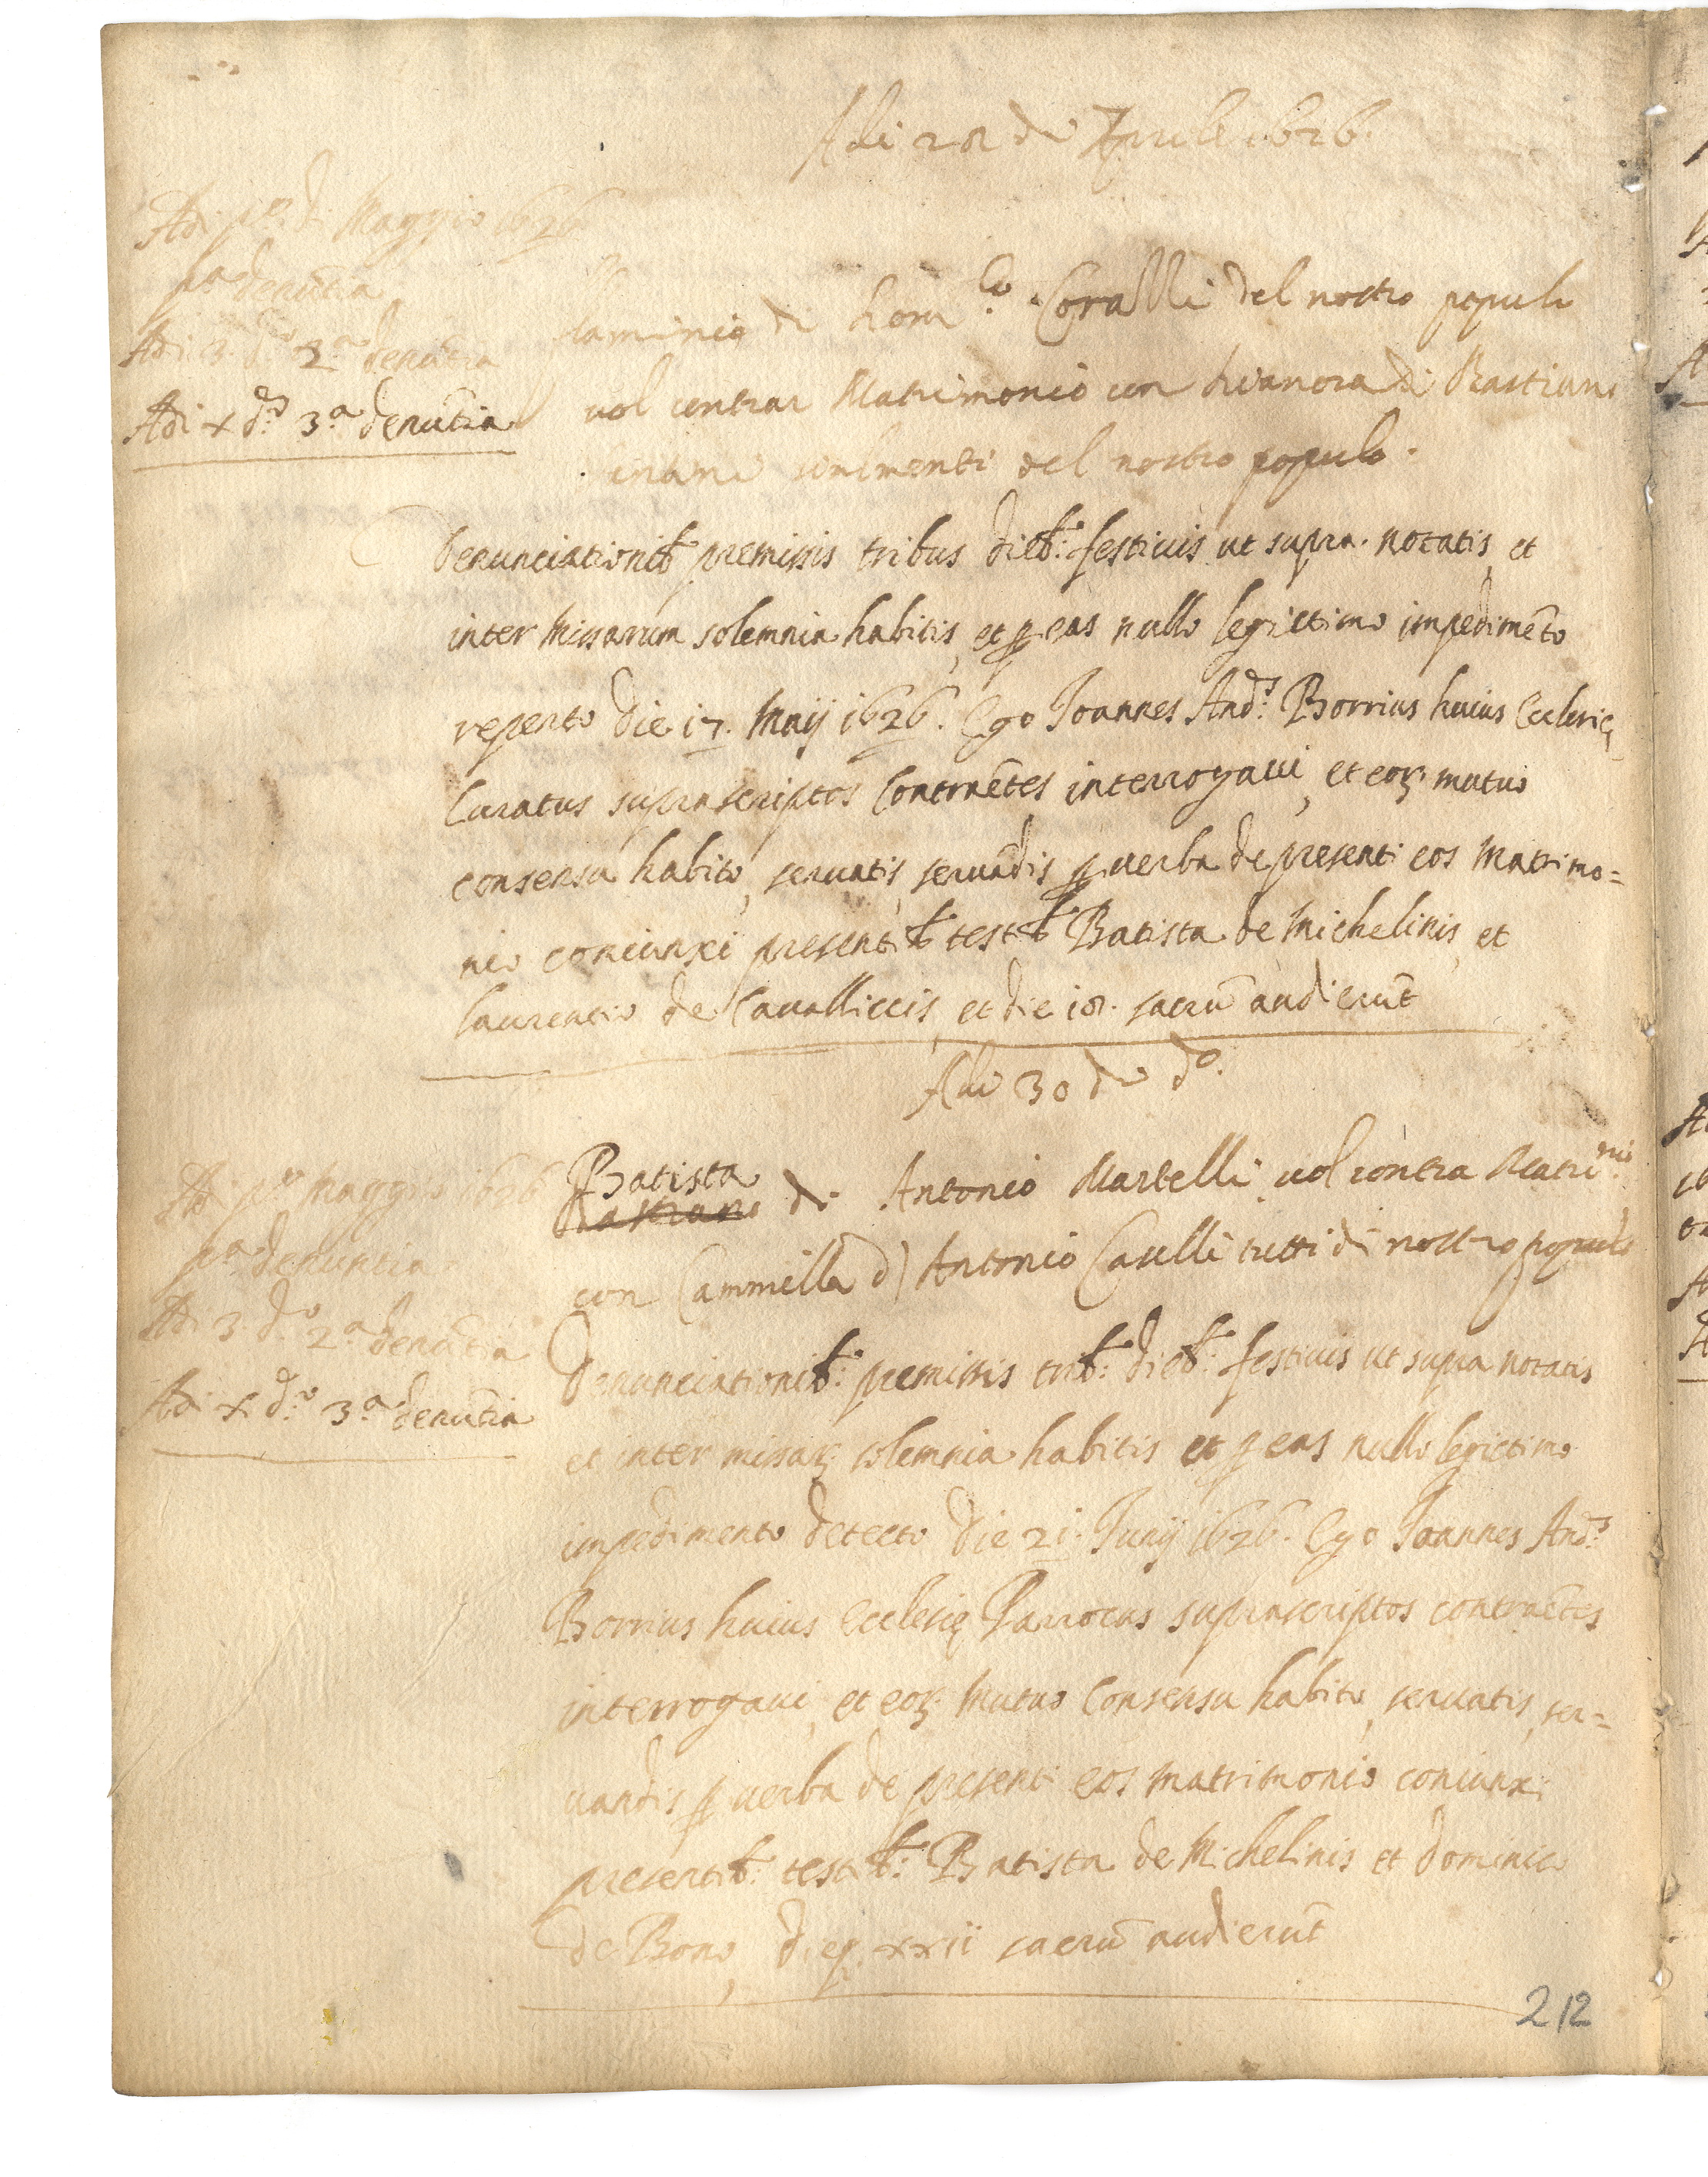 Adi 28 di Aprile 1626.
Adi p.º di Maggio 1626
p.ª denũtia
Adi 3. d.º 2.ª denũtia
Adi x d.º 3.ª denũtia
di Lor.co Coralli del nostro populo
vol contrar Matrimonio con Lianora di Bastiano
del nostro populo.
Denunciationib: premissis tribus dieb: festivis ut supra notatis, et
inter Missarum solemnia habitis, et ꝑ eas nullo legictimo impedimẽto
reperto die 17. Maij 1626. Ego Joannes And.s Borrius huius Ecclesię
Curatus suprascriptos Contraẽtes interrogaui, et eoꝝ mutuo
consensu habito, seruatis, seruãdis ꝑ uerba de presenti eos matrimo=
nio coniunxi presentib: testib: Batista de Michelinis, et
Laurentio de Cavalliccis, et die 18. sacrũ audierũt
Adi 30 di d.º
Adi p.º Maggio 1626
p.ª denuntia
Adi 3. d.º 2.ª denũtia
Adi x. d.º 3.ª denũtia
Batista
Bastiano di Antonio Martelli vol contra Matri.nio
con Cammilla d) Antonio Caulli tutti di nostro populo
Denunciationib: premissis trib: dieb: festiuis ut supra notatis
et inter missaꝝ solemnia habitis et ꝑ eas nullo legictimo
impedimento detecto die 21. Junij 1626. Ego Joannes And.s
Borrius huius Ecclesię Parrocus suprascriptos contraẽtes
interrogaui, et eoꝝ mutuo Consensu habito, seruatis, ser=
uandis ꝑ uerba de presenti eos matrimonio coniunxi
presentib: testib: Batista de Michelinis et Dominico
de Bono, xxii sacrũ audierũt
212